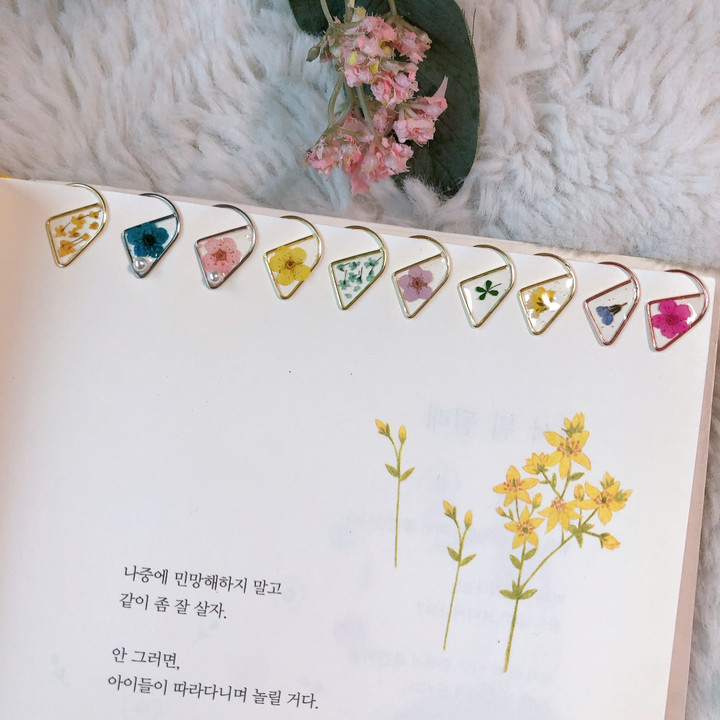 나중에 민망해하지 말고
같이 좀 잘 살자.
안 그러면,
아이들이 따라다니며 놀릴 거다.